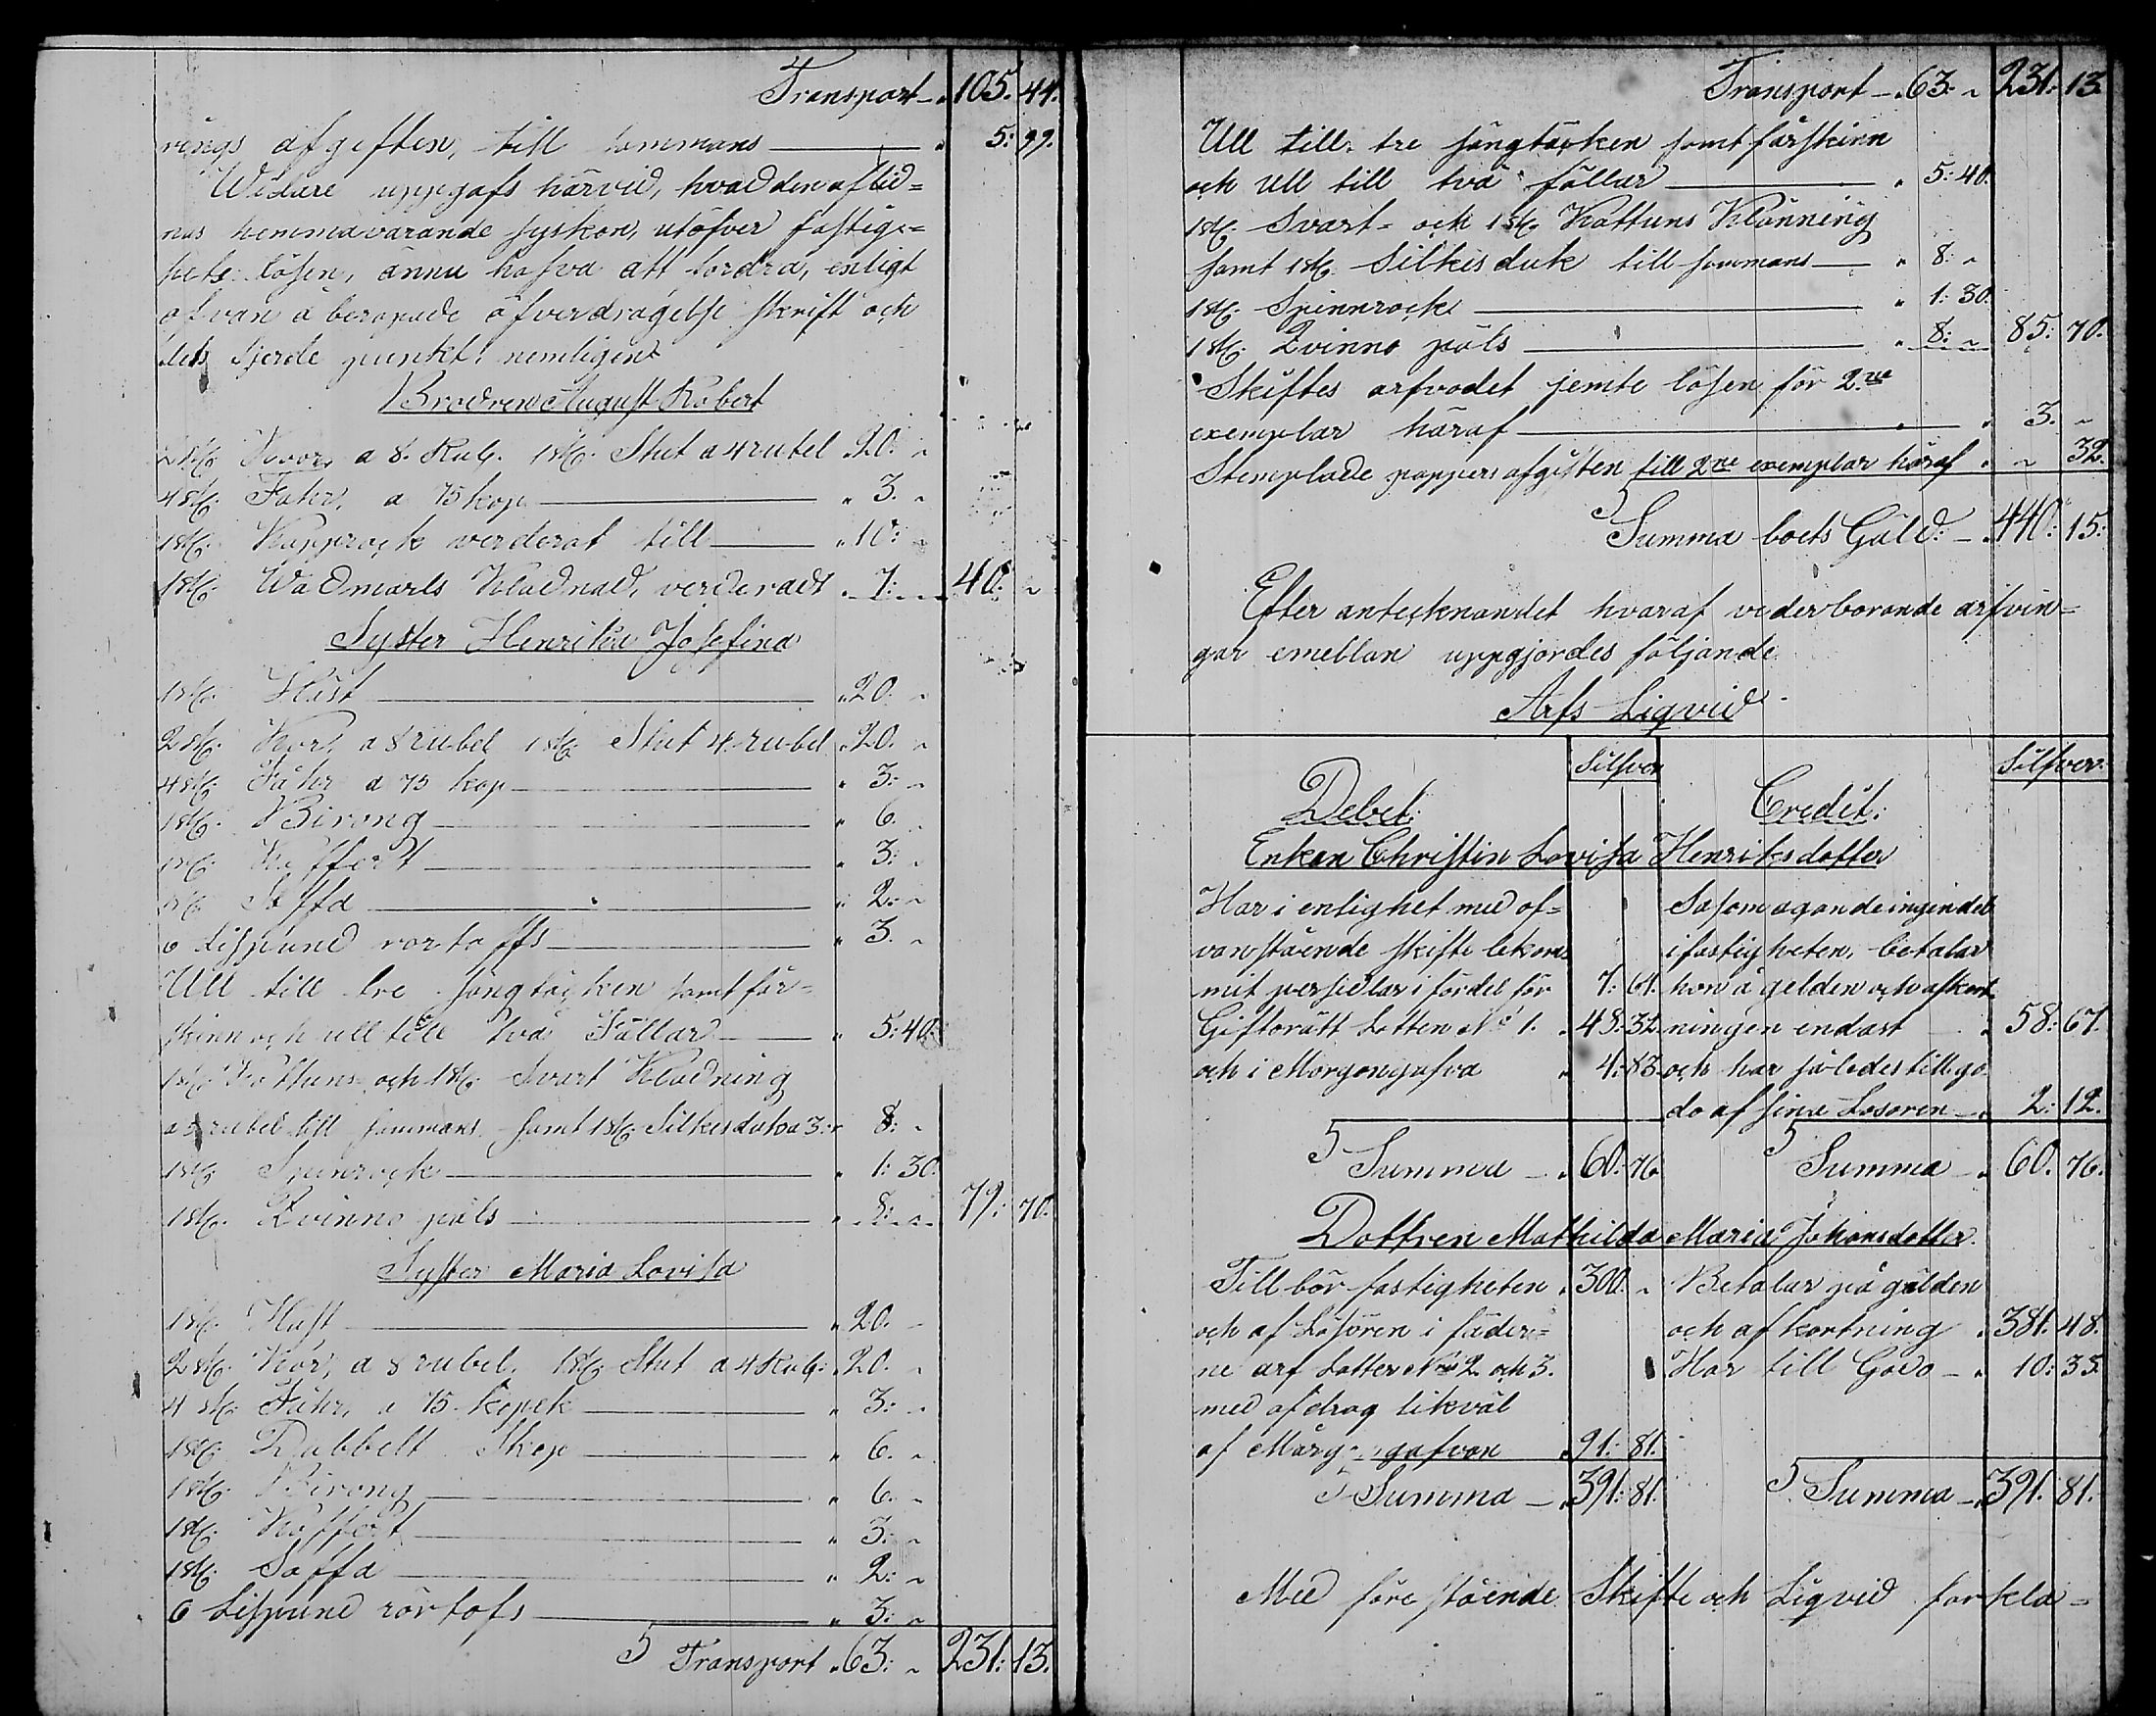 Transport — „ 105. 44.
rings afgiften, till sammans — „ 5: 99.
Widare uppgafs härvid, hvad den aflid=
nas hemmavarande syskon, utöfver fastig=
hets lösen, ännu hafva att fordra, enligt
ofvan åberopade öfverdragelse skrift och
dess fjerde punkt: nemligen
Brodren August Robert
2 st. Kor, a 8. Rub. 1 st. Stut a 4 rubel „ 20. „
4 st. Fåhr, a 75 kop — „ 3. „
1 st. Kapprock verderat till — „ 10: „
1 st. Wadmarls Kladnad, verderadt „ 7: „ 40: „
Syster Henrika Josefina
1 st. Häst — „ 20. „
2 st. Kor, a 8 rubel 1 st. Stut 4 rubel „ 20. „
4 st. Fåhr a 75 kop — „ 3: „
1 st. Birong — „ 6. „
1 st. Koffert — „ 3: „
1 st. Soffa — „ 2: „
6 Lispund rörtoffs — „ 3. „
Ull till tre sängtäcken samt får=
skinn och ull till två Fällar — „ 5: 40.
1 st. Kattuns och 1 st. Svart Kladning
a 5 rubel till sammans samt 1 st. Silkisduk a 3: r „ 8: „
1 st. Spinrock — „ 1: 30.
1 st. Qvinno päls — „ 8: „ 79: 70.
Syster Maria Lovisa
1 st. Häst — „ 20. —
2 st. Kor, a 8 rubel, 1 st. Stut a 4 Rub: „ 20. „
4 st. Fåhr, a 75 kopek — „ 3: „
1 st. Dubbelt Skop — „ 6. „
1 st. Birong — „ 6. „
1 st. Koffert — „ 3: „
1 st. Soffa — „ 2: „
6 Lispund rörtofs — „ 3: „
S Transport „ 63: „ 231: 13.
Transport — „ 63: „ 231: 13.
Ull till tre sängtäcken samt fårskinn
och Ull till två fällar — „ 5: 40.
1 st. Svart- och 1 st. Kattuns Klänning
samt 1 st. Silkisduk till sammans — „ 8: „
1 st. Spinnrock — „ 1: 30.
1 st. Qvinno päls — „ 8: „ 85: 70.
Skiftes arfvodet jemte lösen för 2ne
exemplar häraf — „ 3. „
Stemplade pappers afgiften till 2ne exemplar häraf „ „ 32.
S Summa boets Gäld: — „ 440: 15:
Efter antecknandet hvaraf vederborande arfvin=
gar emellan uppgjordes följande
Arfs Liqvid
Silfver Silfver.
Debet: Credit:
Enkan Christin Lovisa Henriksdotter
Har i enlighet med of= Såsom agande ingen del
vanstående skifte bekom= i fastigheten, betalar
mit persedlar i fördel för 7: 61. hon å gelden och afkort
Giftorätt Lotten No 1. „ 48: 32. ningen endast „ 58: 67.
och i Morgongafva „ 4: 83. och har således tillgo
do af sina Lösören — „ 2: 12.
S Summa — „ 60: 76. S Summa — „ 60. 76.
Dottren Mathilda Maria Johansdotter
Till bör fastigheten „ 300. „ Betalar på gälden
och af Lösören i fäder= och afkortning „ 381: 48.
ne arf Lotter No 2 och 3. Har till Godo — „ 10: 33.
med afdrag likväl
af Morgongafvan „ 91: 81.
S Summa — „ 391: 81. S Summa — „ 391. 81.
Med före stående Skifte och Liqvid forkla=